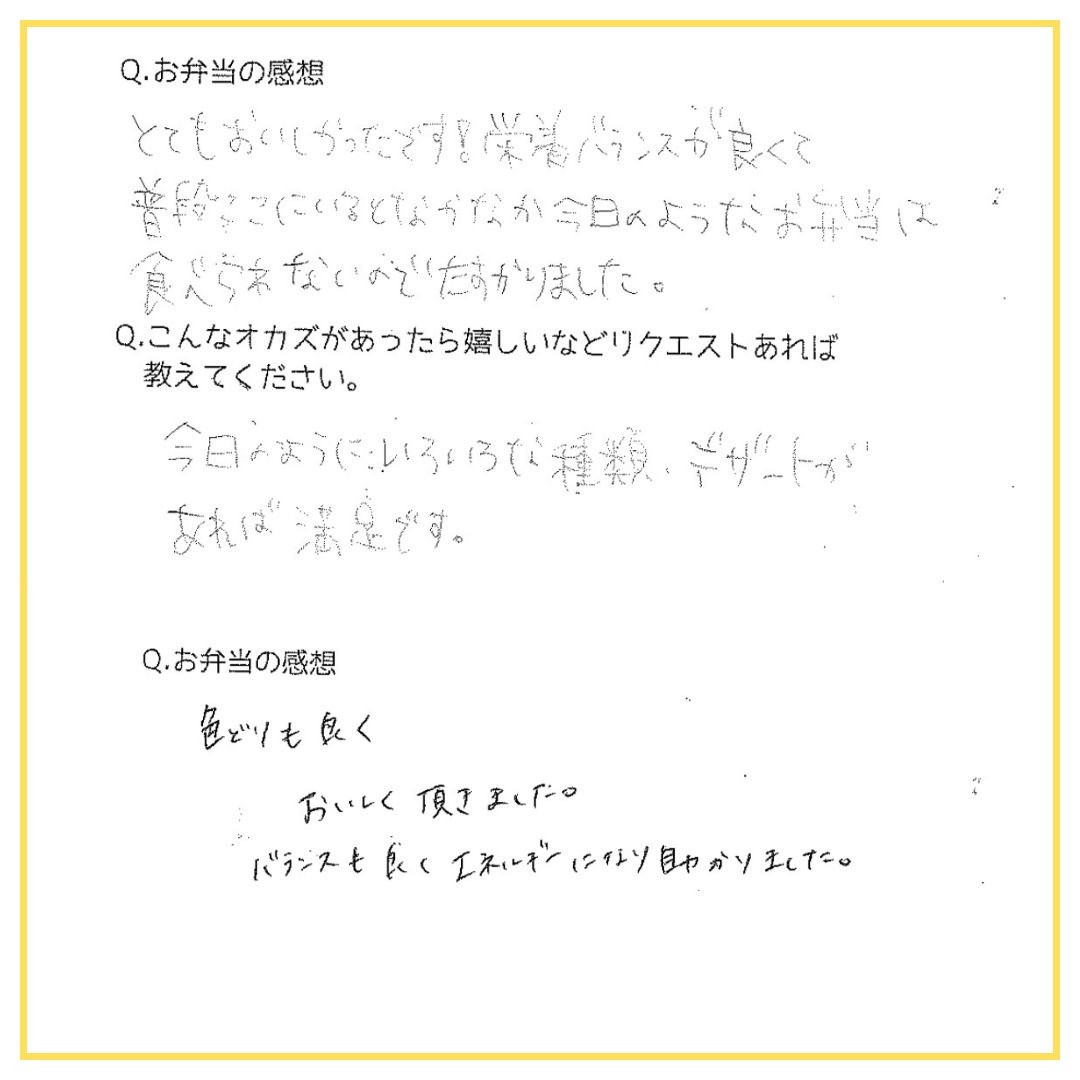 Q.お弁当の感想
とてもおいしかったです!栄養バランスが良くて
普段ここにいるとなかなか今日のようなお弁当は
食べられないのでたすかりました。
Q.こんなオカズがあったら嬉しいなどリクエストあれば
教えてください。
今日のようにいろいろな種類、デザートが
あれば満足です。
Q.お弁当の感想
色どりも良く
おいしく頂きました。
バランスも良くエネルギーになり助かりました。